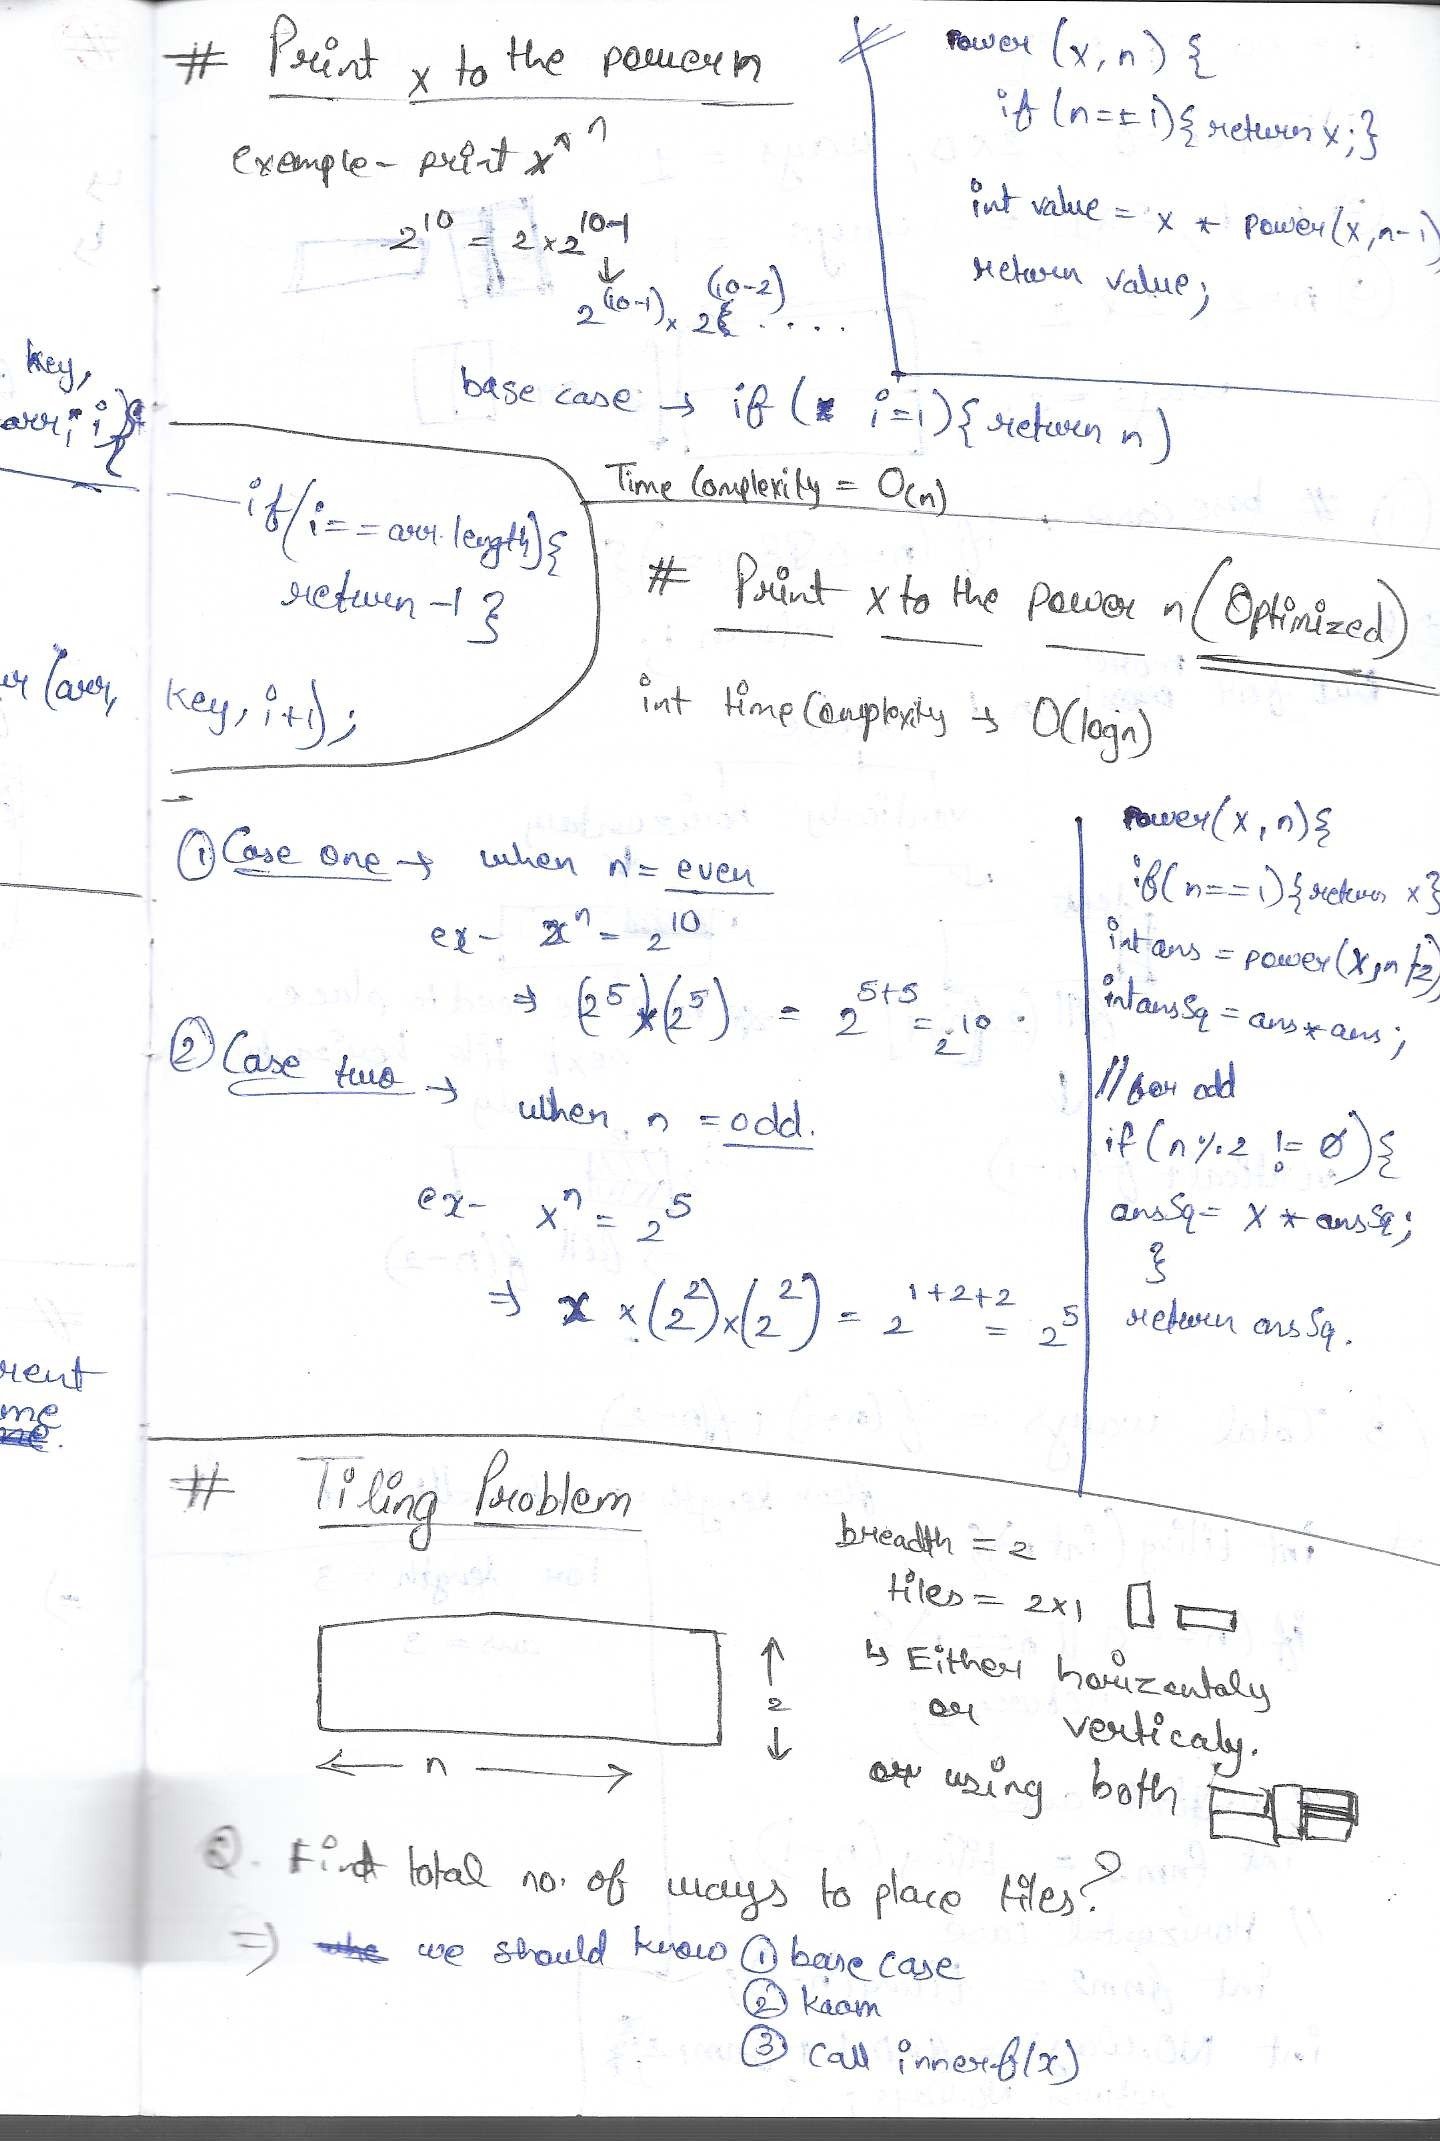 # Print x to the power n
example - print x^n
2^10 = 2 x 2^10-1
↓
2^(10-1) x 2^(10-2) ....
base case → if ( i=1) { return n)
Time Complexity = O(n)
Power (x, n) {
if (n==1) { return x; }
int value = x * power (x, n-1)
return value;
key,
arr, i) {
if (i == arr.length) {
return -1 }
(arr, key, i+1);
# Print x to the power n (Optimized)
int time Complexity → O(logn)
① Case one → when n = even
ex - x^n = 2^10
⇒ (2^5) x (2^5) = 2^5+5 = 2^10.
② Case two → when n = odd.
ex - x^n = 2^5
⇒ x x (2^2) x (2^2) = 2^1+2+2 = 2^5
Power (x, n) {
if (n==1) { return x }
int ans = power (x, n/2)
int ansSq = ans * ans;
// for odd
if (n % 2 != 0) {
ansSq = x * ansSq;
}
return ansSq.
# Tiling Problem
breadth = 2
tiles = 2x1
↳ Either horizontaly
or verticaly.
or using both
↑
2
↓
← n →
Q. Find total no. of ways to place tiles?
⇒ we should know ① base case
② kaam
③ call inner f(x)